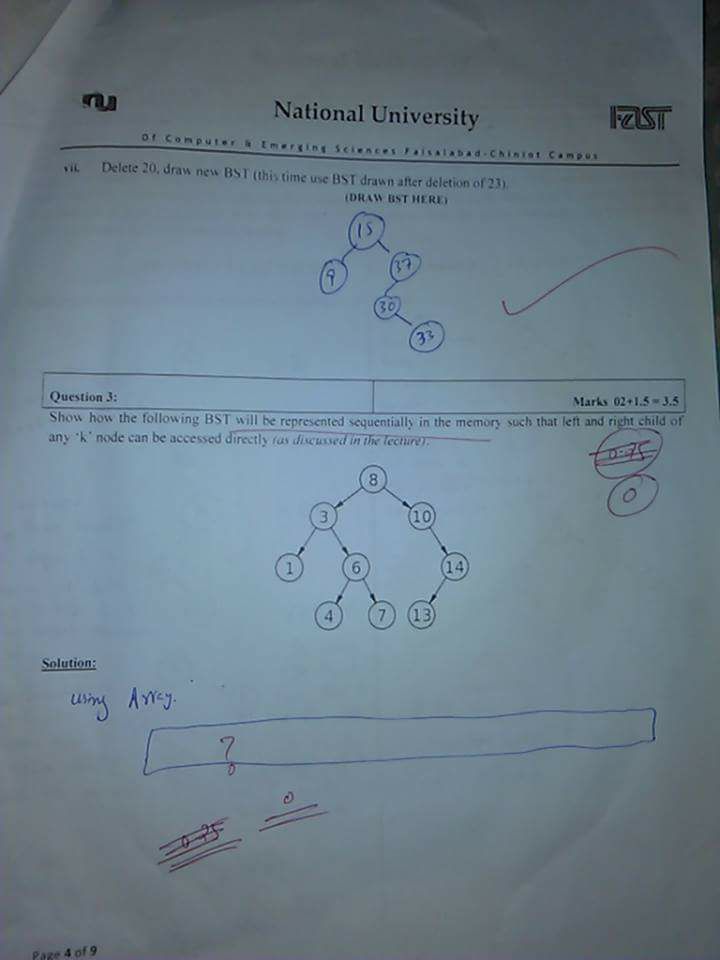 nu
National University
FAST
Of Computer & Emerging Sciences Faisalabad-Chiniot Campus
vii. Delete 20, draw new BST (this time use BST drawn after deletion of 23).
(DRAW BST HERE)
15
9 37
30
33
Question 3:
Marks 02+1.5 = 3.5
Show how the following BST will be represented sequentially in the memory such that left and right child of
any 'k' node can be accessed directly (as discussed in the lecture).
0.75
0
8
3 10
1 6 14
4 7 13
Solution:
using Array.
?
0
0.75
Page 4 of 9